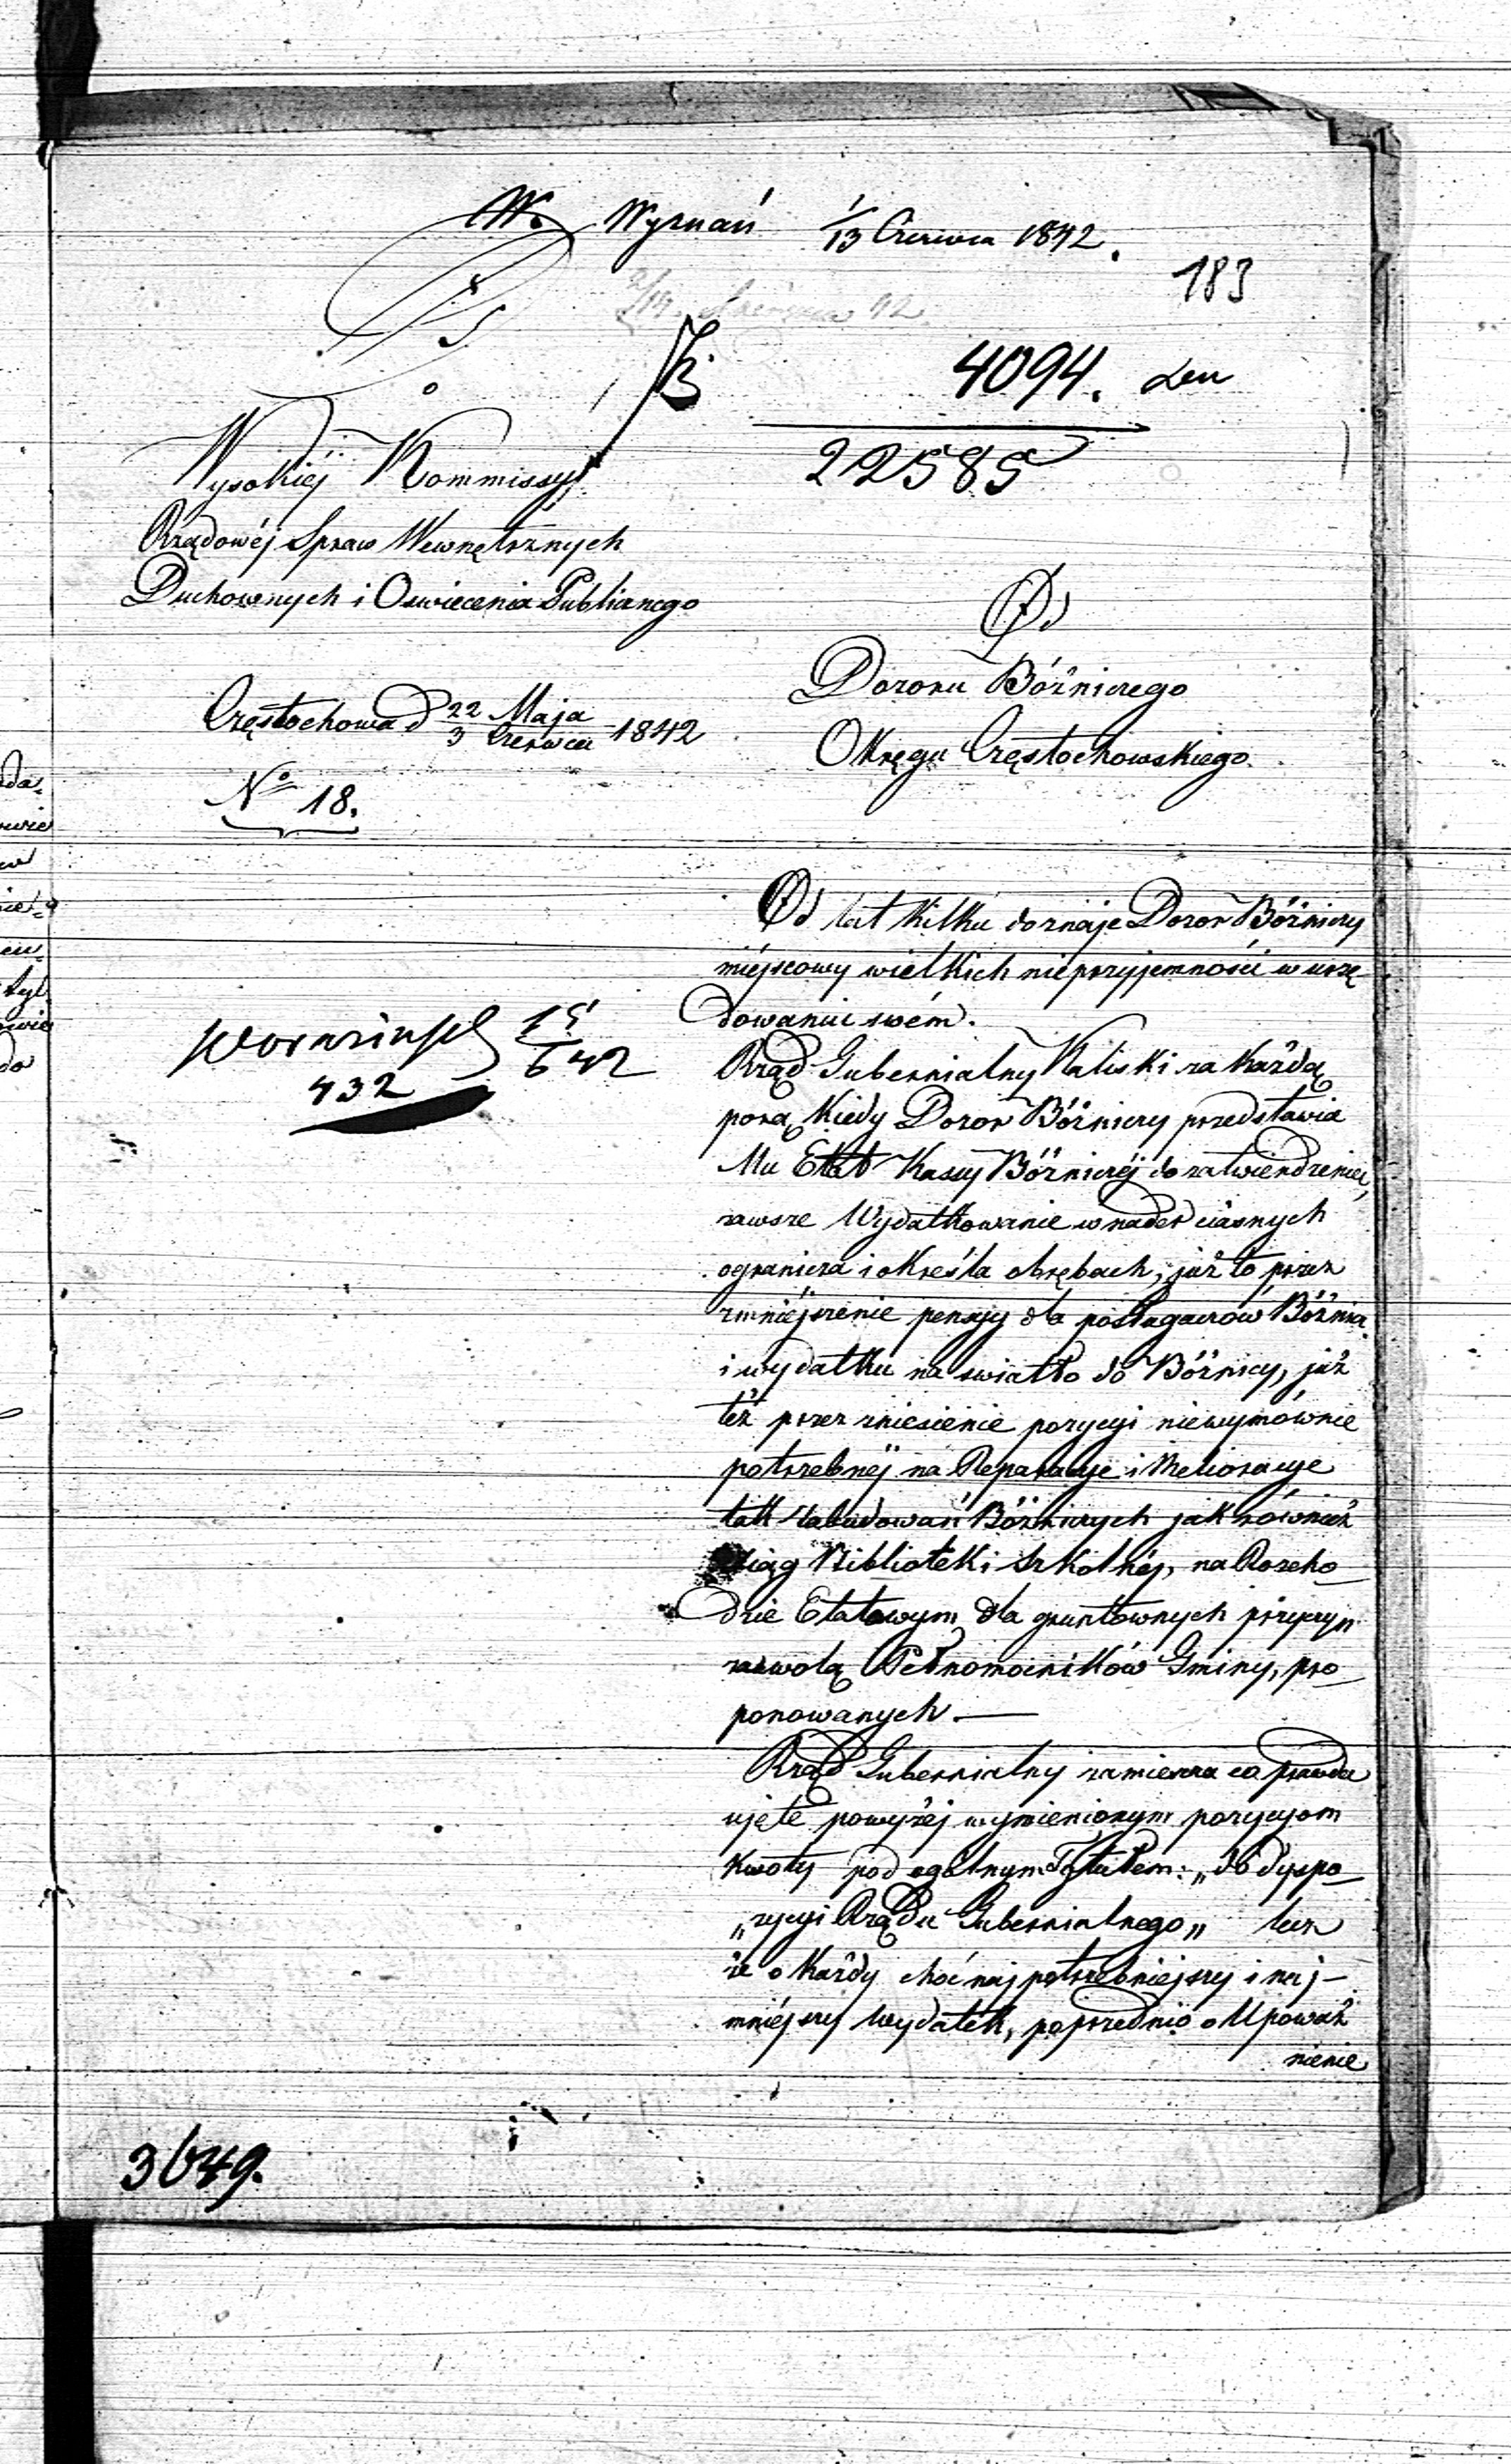 W. Wyznań 1/13 Czerwca 1842.
183
4094.
22585
Do
Wysokiéj Kommissyi
Rządowéj Spraw Wewnętrznych
Duchownych i Oswiecenia Publicznego
Częstochowa d 22 Maja / 3 Czerwca 1842
No 18.
432
Od
Dozoru Bóżniczego
Okręgu Częstochowskiego.
Od lat kilku doznaje Dozor Bóżniczy
miéjscowy wielkich nieprzyjemności w urzę-
dowaniu swém.
Rząd Gubernialny Kaliski za każdą
porą, kiedy Dozor Bóżniczy przedstawia
Mu Etat Kassy Bóżniczéj do zatwierdzenia,
zawsze Wydatkowanie w nader ciasnych
ogranicza i określa obrębach, już to przez
zmniéjszenie pensyj dla posługaczów Bóżnicz.
i wydatku na swiatło do Bóżnicy, już
też przez zniesienie pozycyi niewymównie
potrzebnéj na Reparacye i Melioracye
tak Zabudowań Bóżniczych jak również
Xiąg Biblioteki Szkolnéj, na Rozcho-
dzie Etatowym dla gruntownych przyczyn
za wolą Pełnomocników Gminy, pro-
ponowanych.—
Rząd Gubernialny zamieszcza co prawda
ujęte powyżéj wymienionym pozycyom
kwoty pod ogólnym Tytułem: „do dyspo-
„zycyi Rządu Gubernialnego„ lecz
że o każdy choć najpotrzebniejszy i naj-
mniéjszy wydatek, poprzednio o Upoważ
nienie
3649.